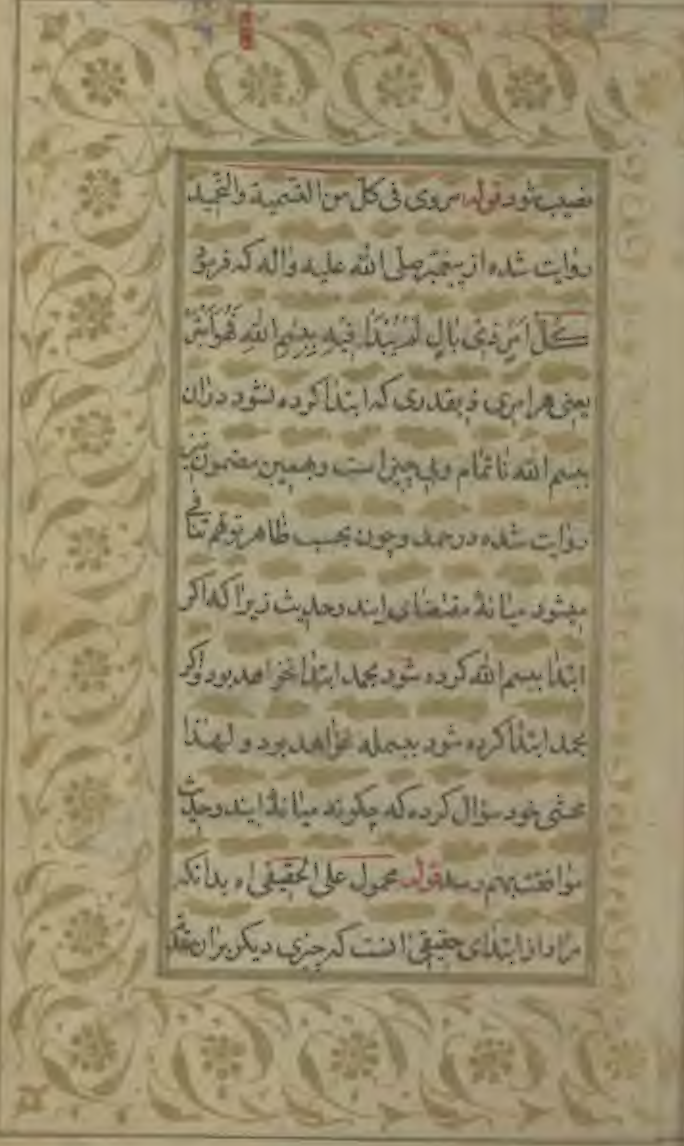 نصیب شود قوله مروی فی کل من التسمیة والتحمید
روایت شده از پیغمبر صلی الله علیه واله که فرمود
كُلّ اَمرٍ ذی بٰالٍ لَمْ یُبْدَأ فیهِ بِبِسْمِ اللهِ فَهُوَ اَبْتَرُ
یعنی هر امری ذیقدری که ابتدا کرده نشود دران
ببسم الله ناتمام وبی چیز است و بهمین مضمون نیز
روایت شده در حمد و چون بحسب ظاهر توهم تنافی
میشود میانهٔ مقتضای ایندو حدیث زیرا که اکر
ابتدا ببسم الله کرده شود بحمد ابتدا نخواهد بود واکر
بحمد ابتدا کرده شود ببسمله نخواهد بود و لهذا
محشی خود سؤال کرده که چکونه میانهٔ ایندو حدیث
موافقت بهم رسد قوله محمول علی الحقیقی اه بدانکه
مراد از ابتدای حقیقی انست که چیزی دیکر بران مقدم